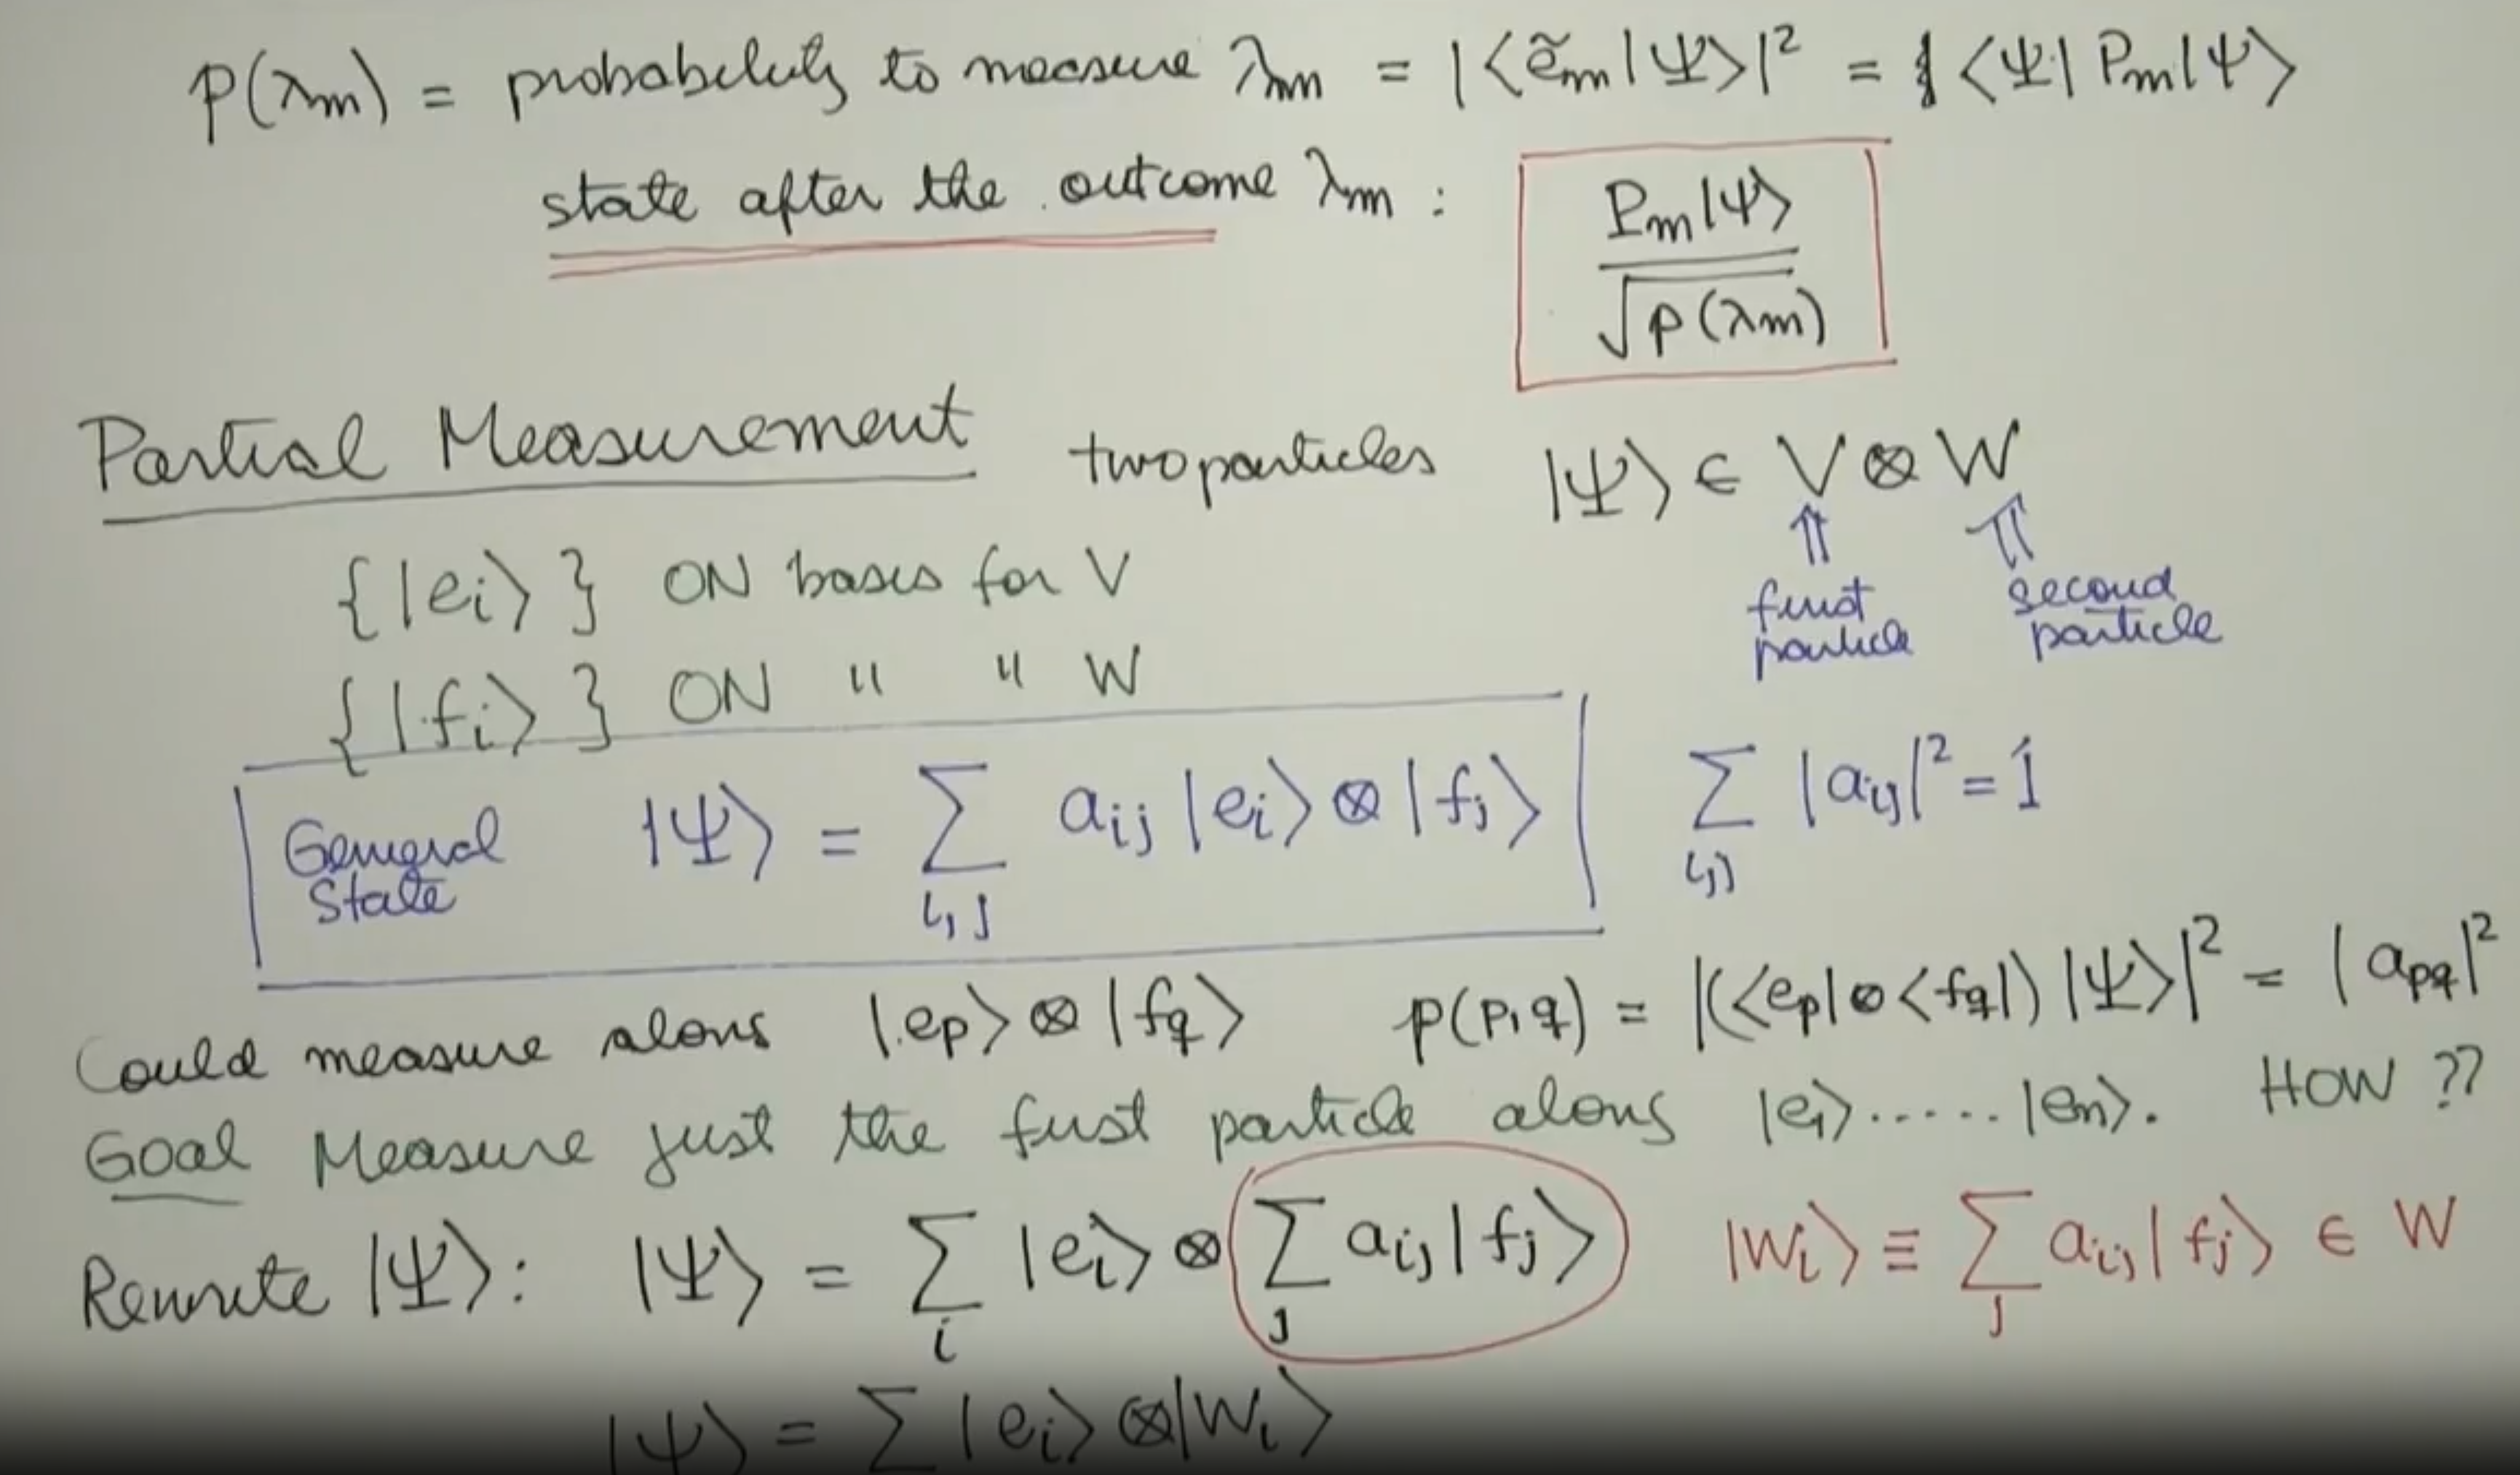 p(λm) = probability to measure λm = |⟨ẽm|Ψ⟩|² = ⟨Ψ|Pm|Ψ⟩
state after the outcome λm : Pm|Ψ⟩ / √p(λm)
Partial Measurement two particles |Ψ⟩ ∈ V ⊗ W
⇑ ⇑
first particle second particle
{|ei⟩} ON basis for V
{|fi⟩} ON " " W
General State |Ψ⟩ = ∑i,j aij |ei⟩ ⊗ |fj⟩ ∑i,j |aij|² = 1
Could measure along |ep⟩ ⊗ |fq⟩ p(p,q) = |(⟨ep| ⊗ ⟨fq|) |Ψ⟩|² = |apq|²
Goal Measure just the first particle along |e1⟩.....|en⟩. HOW ??
Rewrite |Ψ⟩: |Ψ⟩ = ∑i |ei⟩ ⊗ ∑j aij|fj⟩ |Wi⟩ ≡ ∑j aij|fj⟩ ∈ W
|Ψ⟩ = ∑ |ei⟩ ⊗ |Wi⟩